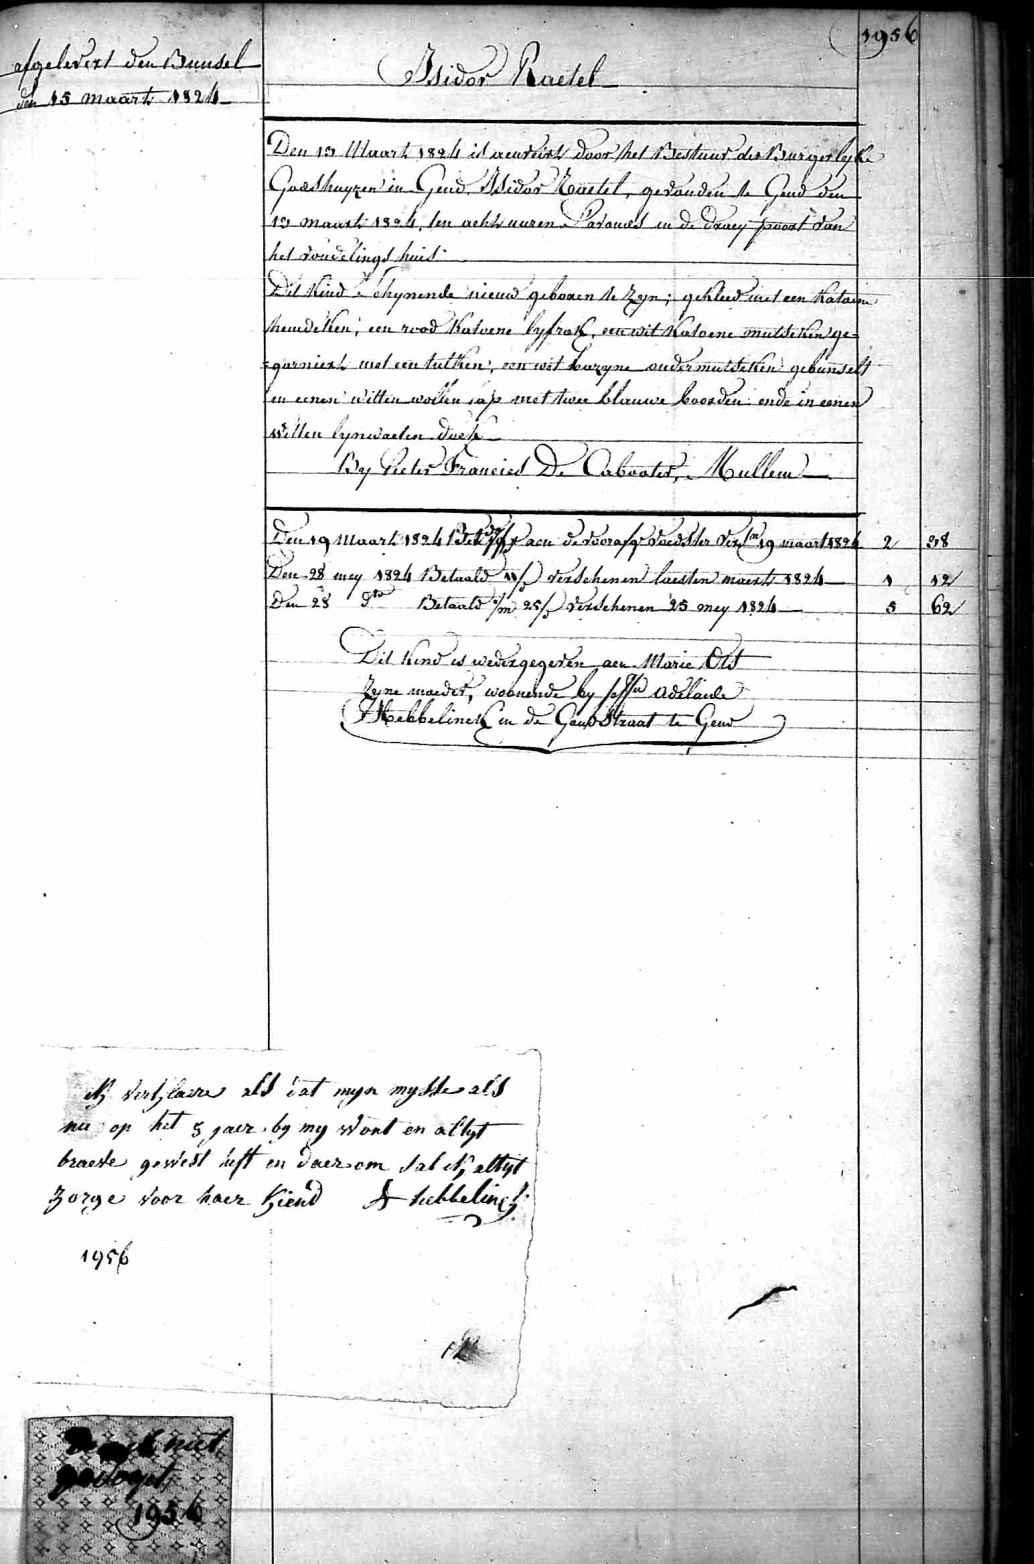 1956
afgelevert den Bunsel
den 15 maart 1824
Isidor Raetel
Den 13 Maart 1824 is aenveirt door het Bestuur der Burgerlyke
Godshuyzen in Gend, Isidor Raetel, gevonden te Gend den
13 maart 1824, ten acht uuren S'avonds in de draey poort van
het vondelings huis.
Dit kind schynende nieuw geboren te zyn; gekleed met een katoene
hemdeken, een rood katoene lyfrok, een wit katoene mutseken ge-
=garniert met een tulken; een wit bazyne ondermutseken gebunselt
in eenen witten wollen sap met twee blauwe boorden ende in eenen
witten lynwaeten doek
By Pieter Francies De Cabooter, Mullem
Den 19 Maart 1824 aen de voorafge voedster 19 maart 1824 2 38
Den 28 mey 1824 Betaald verschenen laesten maert 1824 1 12
Den 28 dto Betaald 25/ verschenen 25 mey 1824 5 62
Dit kind is wedergegeven aen Marie Ots
zyne moeder, woonende by Adelaide
Hebbelinck in de Gendstraat te Gend
ik verklaere als dat myn mysse als
nu op het 5 jaer by my wont en altyt
braeve gewest heft en daerom sal ik altyt
zorge voor haer kiend A hebbelinck
1956
niet
1956